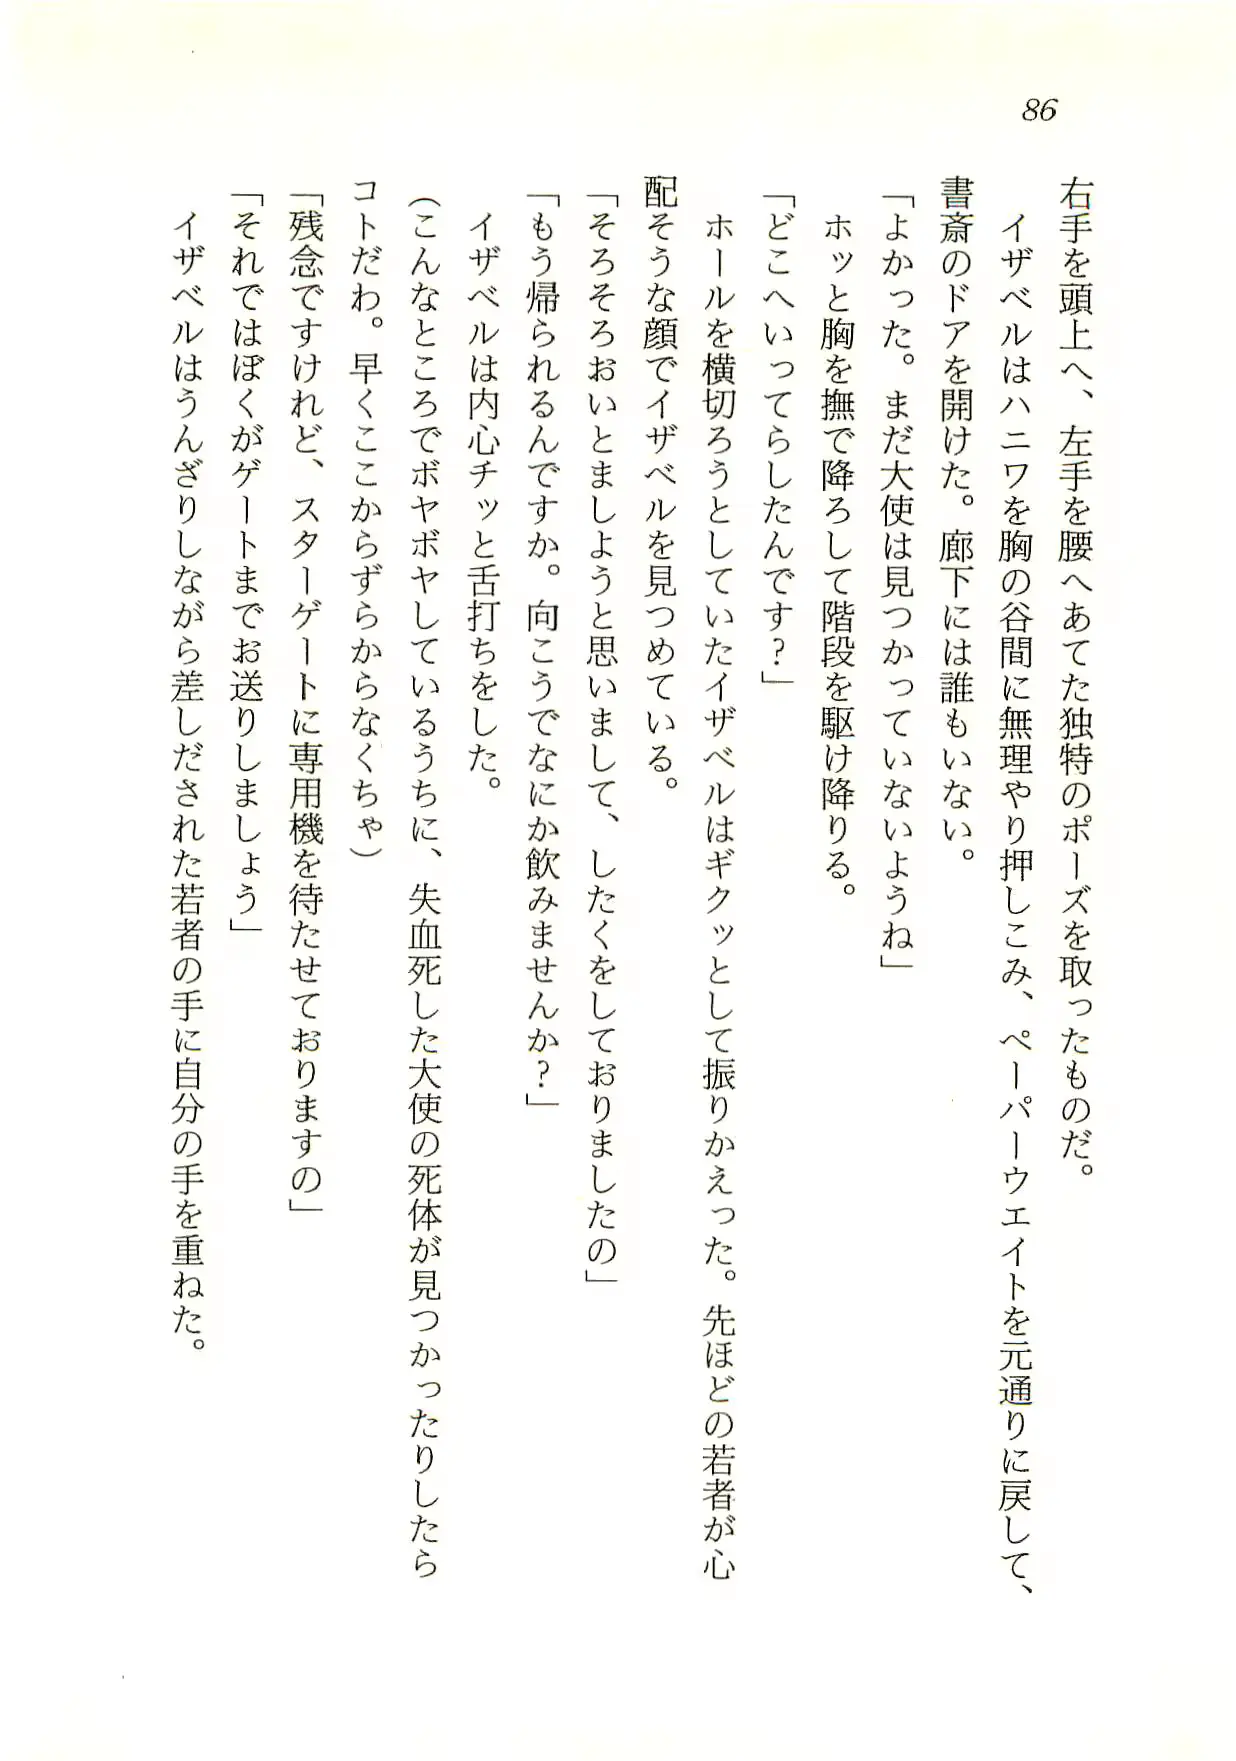 86
右手を頭上へ、左手を腰へあてた独特のポーズを取ったものだ。
イザベルはハニワを胸の谷間に無理やり押しこみ、ペーパーウエイトを元通りに戻して、
書斎のドアを開けた。廊下には誰もいない。
「よかった。まだ大使は見つかっていないようね」
ホッと胸を撫で降ろして階段を駆け降りる。
「どこへいってらしたんです?」
ホールを横切ろうとしていたイザベルはギクッとして振りかえった。先ほどの若者が心
配そうな顔でイザベルを見つめている。
「そろそろおいとましようと思いまして、したくをしておりましたの」
「もう帰られるんですか。向こうでなにか飲みませんか?」
イザベルは内心チッと舌打ちをした。
(こんなところでボヤボヤしているうちに、失血死した大使の死体が見つかったりしたら
コトだわ。早くここからずらからなくちゃ)
「残念ですけれど、スターゲートに専用機を待たせておりますの」
「それではぼくがゲートまでお送りしましょう」
イザベルはうんざりしながら差しだされた若者の手に自分の手を重ねた。